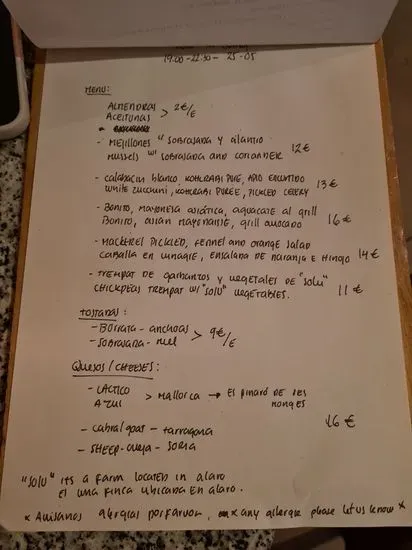 19:00 - 22:30 - 25-05
MENU:
ALMENDRAS
ACEITUNAS > 2€/E
- MEJILLONES w/ SOBRASADA y cilantro
MUSSELS w/ SOBRASADA AND CORIANDER 12 €
- calabacin blanco, KOHLRABI PURE, APIO ENCURTIDO
WHITE ZUCCHINI, KOHLRABI PUREE, PICKLED CELERY 13 €
- BONITO, MAYONESA ASIÁTICA, aguacate al grill
BONITO, ASIAN MAYONAISSE, grill avocado 16 €
- MACKEREL PICKLED, FENNEL AND ORANGE SALAD
CABALLA EN VINAGRE, ENSALADA DE NARANJA E HINOJO 14 €
- TREMPAT DE garbanzos y vegetales DE "SOLU"
CHICKPEAS TREMPAT w/ "SOLU" VEGETABLES. 11 €
TOSTADAS:
- BORRAJA - anchoas
- SOBRASADA - miel > 9€/E
QUESOS / CHEESES:
- LACTICO
AZUL > Mallorca → ES PINARÓ DE SES MONGES
- CABRA/goat - tarragona
- SHEEP-oveja - SORIA
16 €
"SOLU" ITS A FARM LOCATED IN ALARO
ES UNA FINCA UBICADA EN ALARO.
* Avisanos alergias por favor, any allergie please let us know *